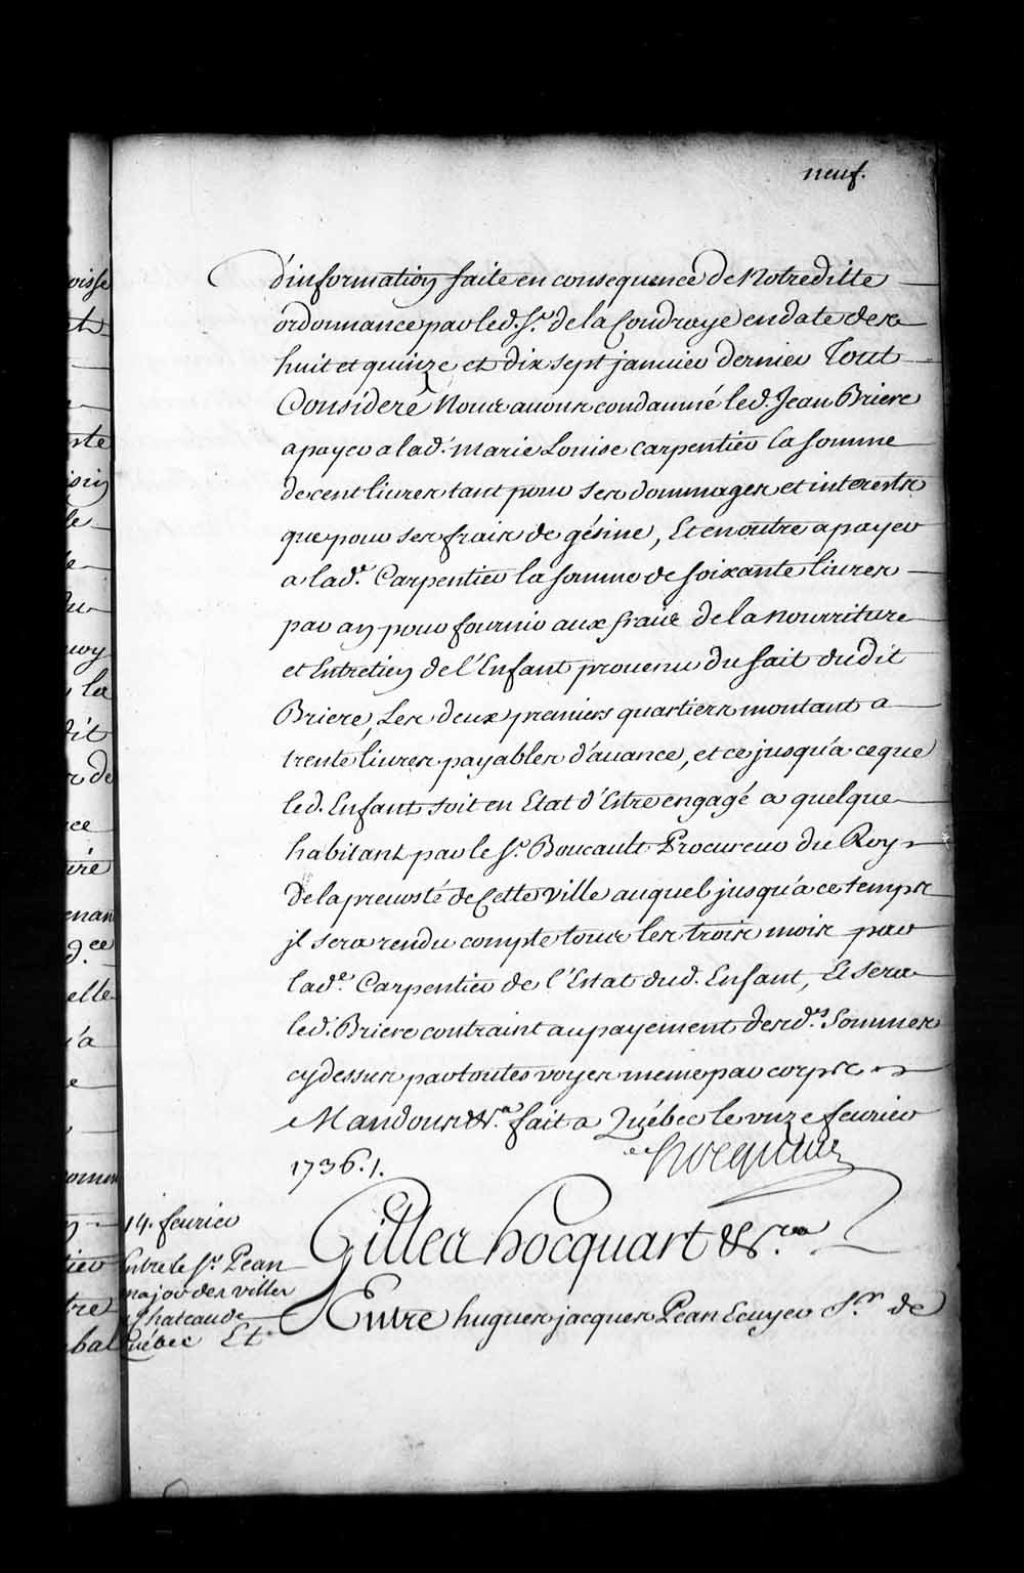 neuf.
d'information faite en consequence de Notreditte
ordonnance par led. Sr. de la Coudraye en date des
huit et quinze et dix sept janvier dernier Tout
Consideré Nous avons condamné led. Jean Briere
a payer a lad. Marie Louise Carpentier la somme
de cent livres tant pour ses dommages et interests
que pour ses frais de gésine, Et en outre a payer
a lade. Carpentier la somme de soixante livres
par an pour fournir aux frais de la nourriture
et Entretien de l'Enfant provenu du fait dudit
Briere, Les deux premiers quartiers montant a
trente livres payables d'avance, et ce jusqu'a ce que
led. Enfant soit en Etat d'Estre engagé a quelque
habitant par le Sr. Boucault Procureur du Roy
de la prevosté de Cette ville auquel jusqu'a ce temps
jl sera rendu compte tous les trois mois par
lade. Carpentier de l'Estat dud. Enfant, Et sera
led. Briere contraint au payement desds. Sommes
cy dessus par toutes voyes meme par corps
Mandons &ca. fait a Québec le onze fevrier
1736./.
hocquart
Gilles hocquart &ca.
14. fevrier
Entre le Sr. Pean
major des villes
& Chateau de
Québec Et
Entre hugues jacques Pean Ecuyer Sr. de
oisse
et
ste
la
dit
de
ce
enan
d.ce
elle
a
tre
bal